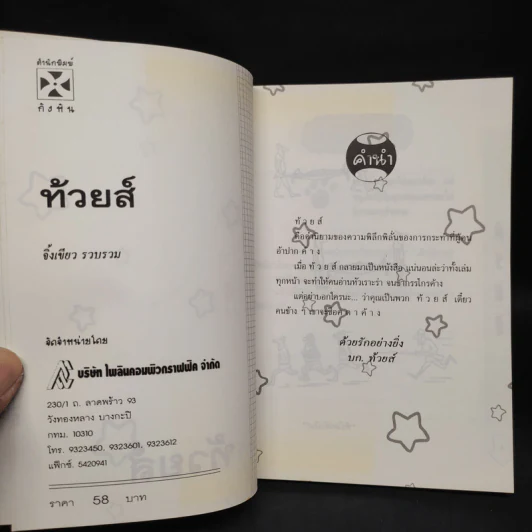 สำนักพิมพ์
กังหัน
ท้วยส์
จิ้งเขียว รวบรวม
จัดจำหน่ายโดย
บริษัท ไพลินคอมพิวกราฟฟิค จำกัด
230/1 ถ. ลาดพร้าว 93
วังทองหลาง บางกะปิ
กทม. 10310
โทร. 9323450, 9323601, 9323612
แฟ็กซ์. 5420941
ราคา 58 บาท
คำนำ
ท้ ว ย ส์
คือคำนิยามของความพิลึกพิลั่นของการกระทำที่
อ้าปาก ค้ า ง
เมื่อ ท้ ว ย ส์ กลายมาเป็นหนังสือ แน่นอนล่ะว่าทั้งเล่ม
ทุกหน้า จะทำให้คนอ่านหัวเราะร่า จนขากรรไกรค้าง
แต่อย่าบอกใครนะ... ว่าคุณเป็นพวก ท้ ว ย ส์ เดี๋ยว
คนข้าง ๆ เขาจะ ค้ า ง
ด้วยรักอย่างยิ่ง
บก. ท้วยส์